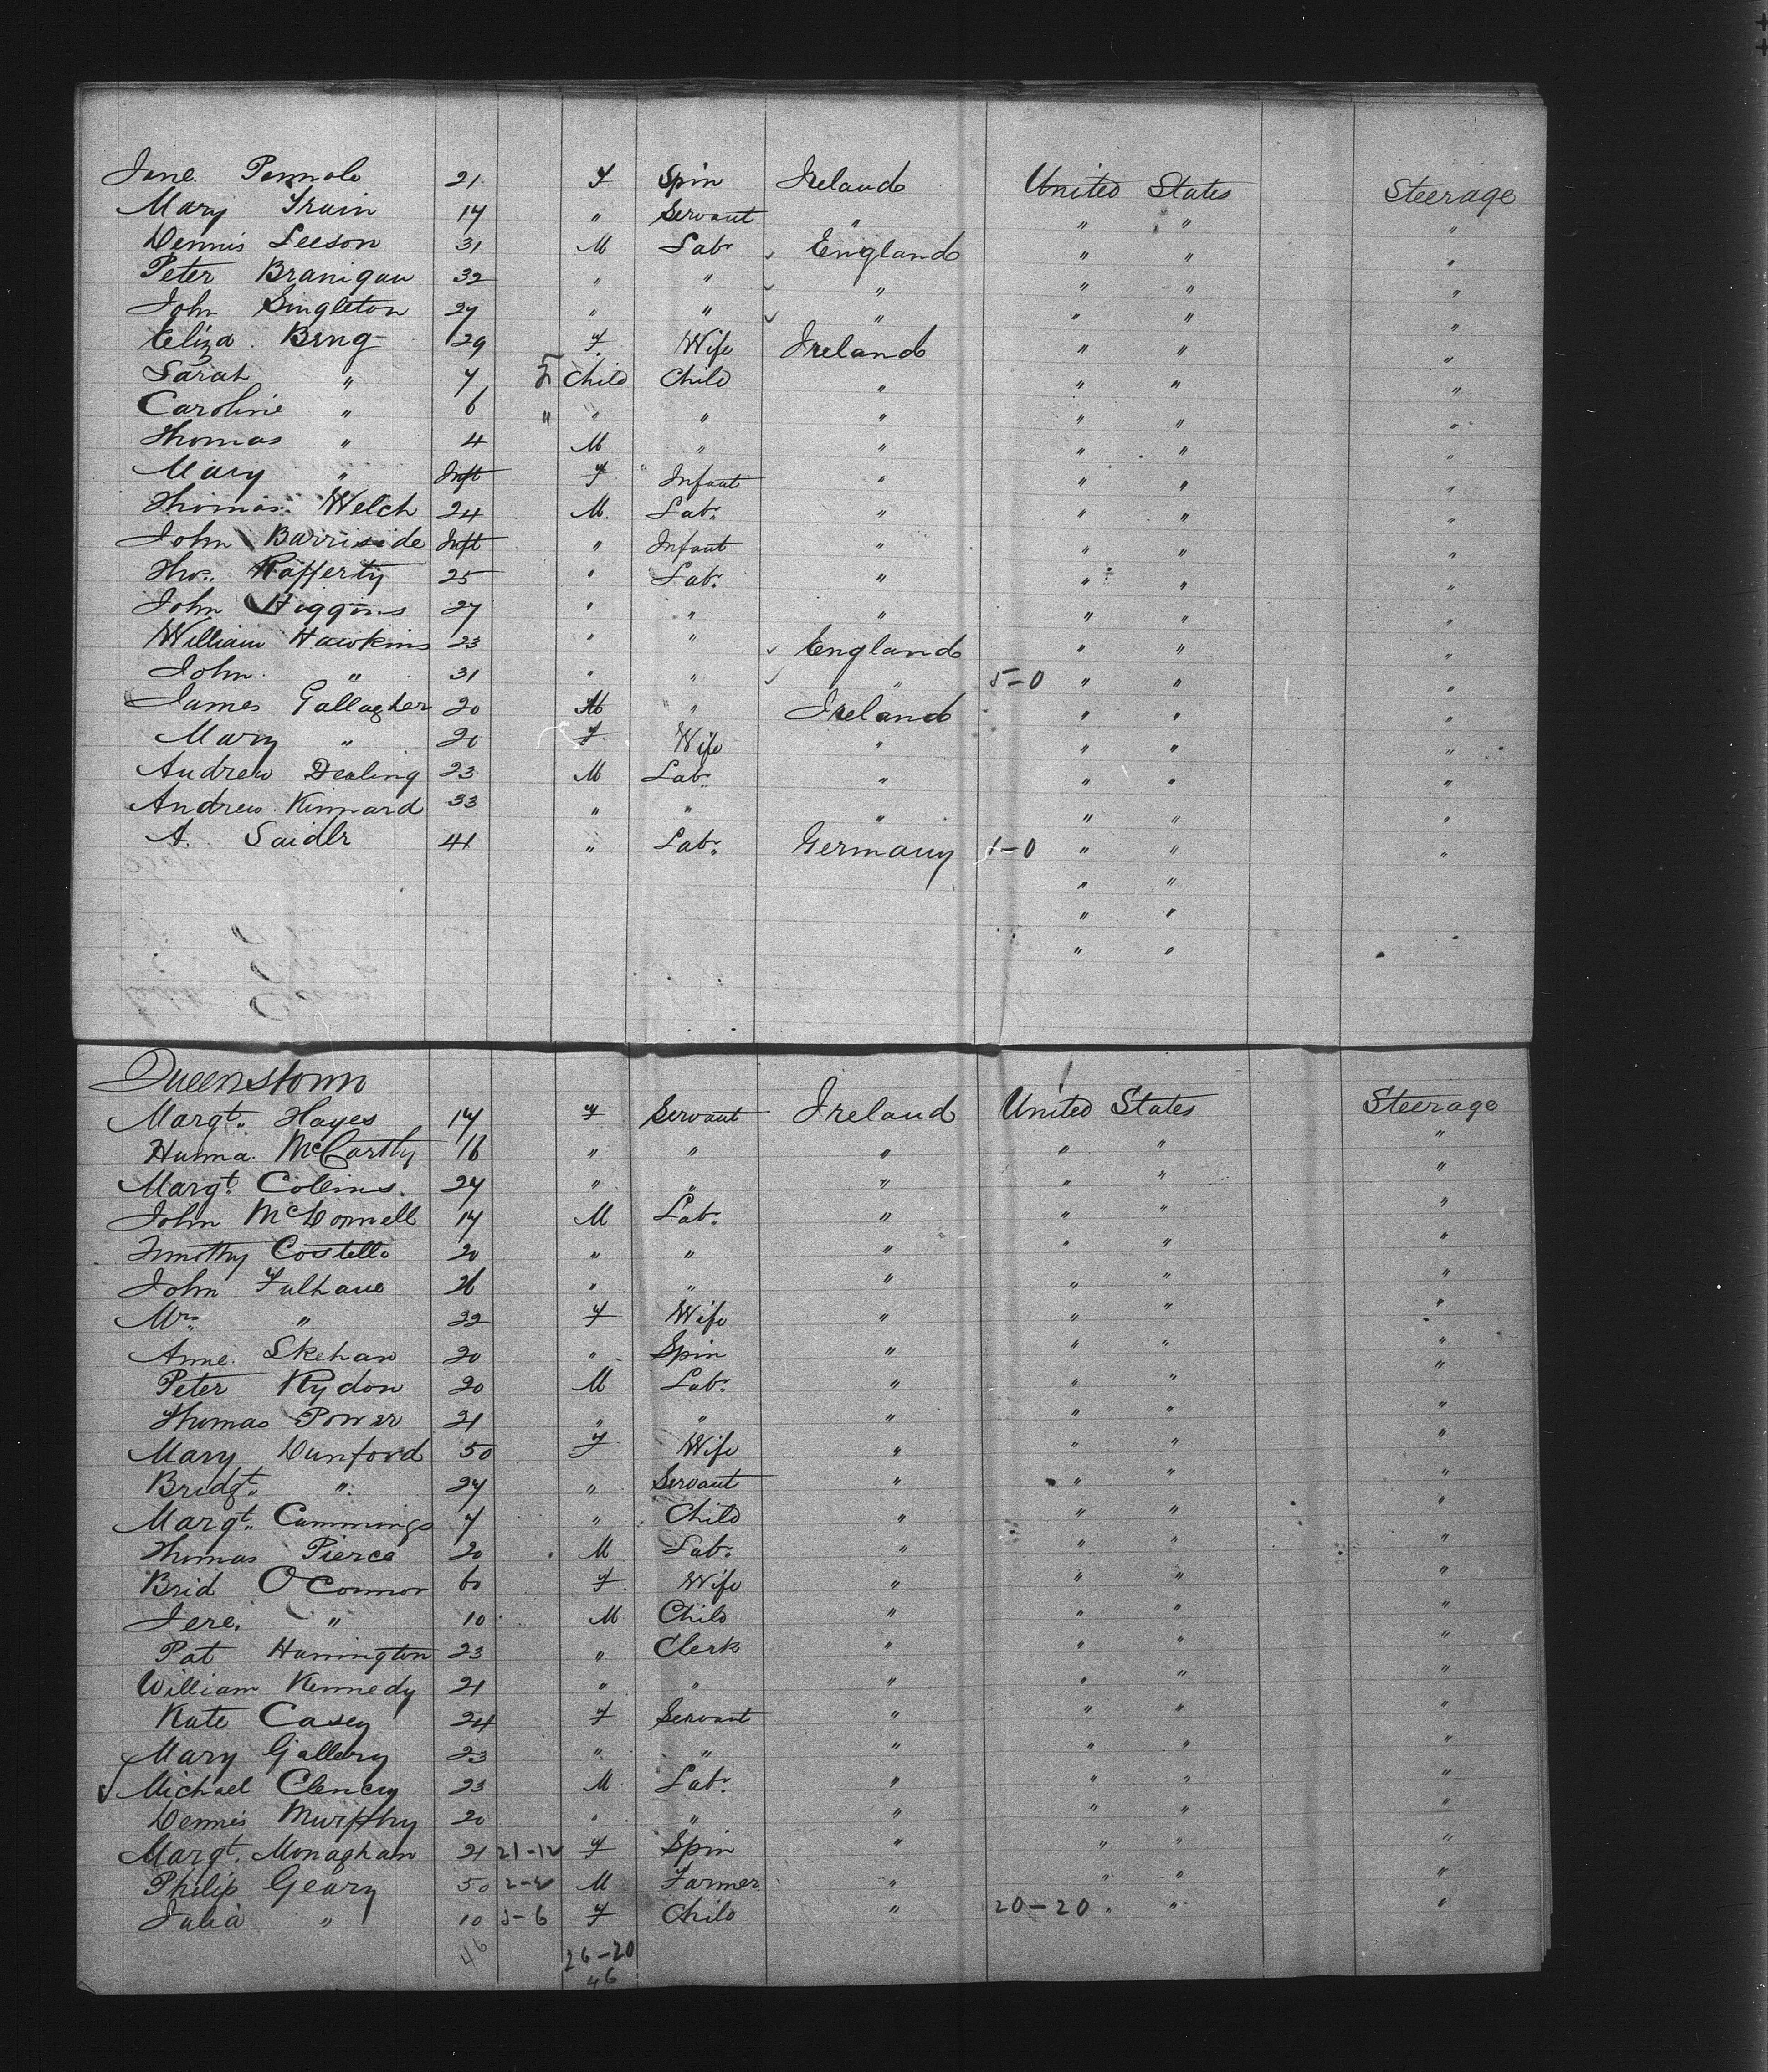 Jane Pennole 21 F Spin Ireland United States Steerage
Mary Train 17 " Servant " " " "
Dennis Leeson 31 M Labr ✓ England " " "
Peter Branigan 32 " " ✓ " " " "
John Singleton 27 " " ✓ " " " "
Eliza Bing 29 F. Wife Ireland " " "
Sarah " 7 F Child Child " " " "
Caroline " 6 " " " " " " "
Thomas " 4 M " " " " "
Mary " Inft F Infant " " " "
Thomas Welch 24 M. Labr. " " " "
John Barriside Inft " Infant " " " "
Thos. Rafferty 25 " Labr. " " " "
John Higgins 27 " " " " " "
William Hawkins 23 " " ✓ England " " "
John " 31 " " ✓ " 5-0 " " "
James Gallagher 20 M " Ireland " " "
Mary " 20 F. Wife " " " "
Andrew Dealing 23 M Labr. " " " "
Andrew Kinnard 33 " " " " " "
A. Saidlr 41 " Labr. Germany 1-0 " " "
" "
" "
" "
Queenstown
Margt. Hayes 17 F Servant Ireland United States Steerage
Hanna. McCarthy 18 " " " " " "
Margt. Collins. 27 " " " " " "
John McDonnell 17 M Labr. " " " "
Timothy Costello 20 " " " " " "
John Fulhane 26 " " " " " "
Mrs. " 22 F Wife " " " "
Anne. Skehan 20 " Spin " " " "
Peter Rydon 20 M Labr. " " " "
Thomas Power 21 " " " " " "
Mary Dunford 50 F Wife " " " "
Bridgt. " 27 " Servant " " " "
Margt. Cummings 7 " Child " " " "
Thomas Pierce 20 M Labr. " " " "
Brid O'Connor 60 F. Wife " " " "
Jere. " 10 M Child " " " "
Pat Hannington 23 " Clerk " " " "
William Kennedy 21 " " " " " "
Kate Casey 24 F Servant " " " "
Mary Gallery 23 " " " " " "
✓ Michael Clency 23 M Labr. " " " "
Dennis Murphy 20 " " " " " "
Margt. Monaghan 21 21-12 F Spin " " " "
Philip Geary 50 2-2 M Farmer " " " "
Julia " 10 5-6 F Child " 20-20 " " "
46 26-20
46